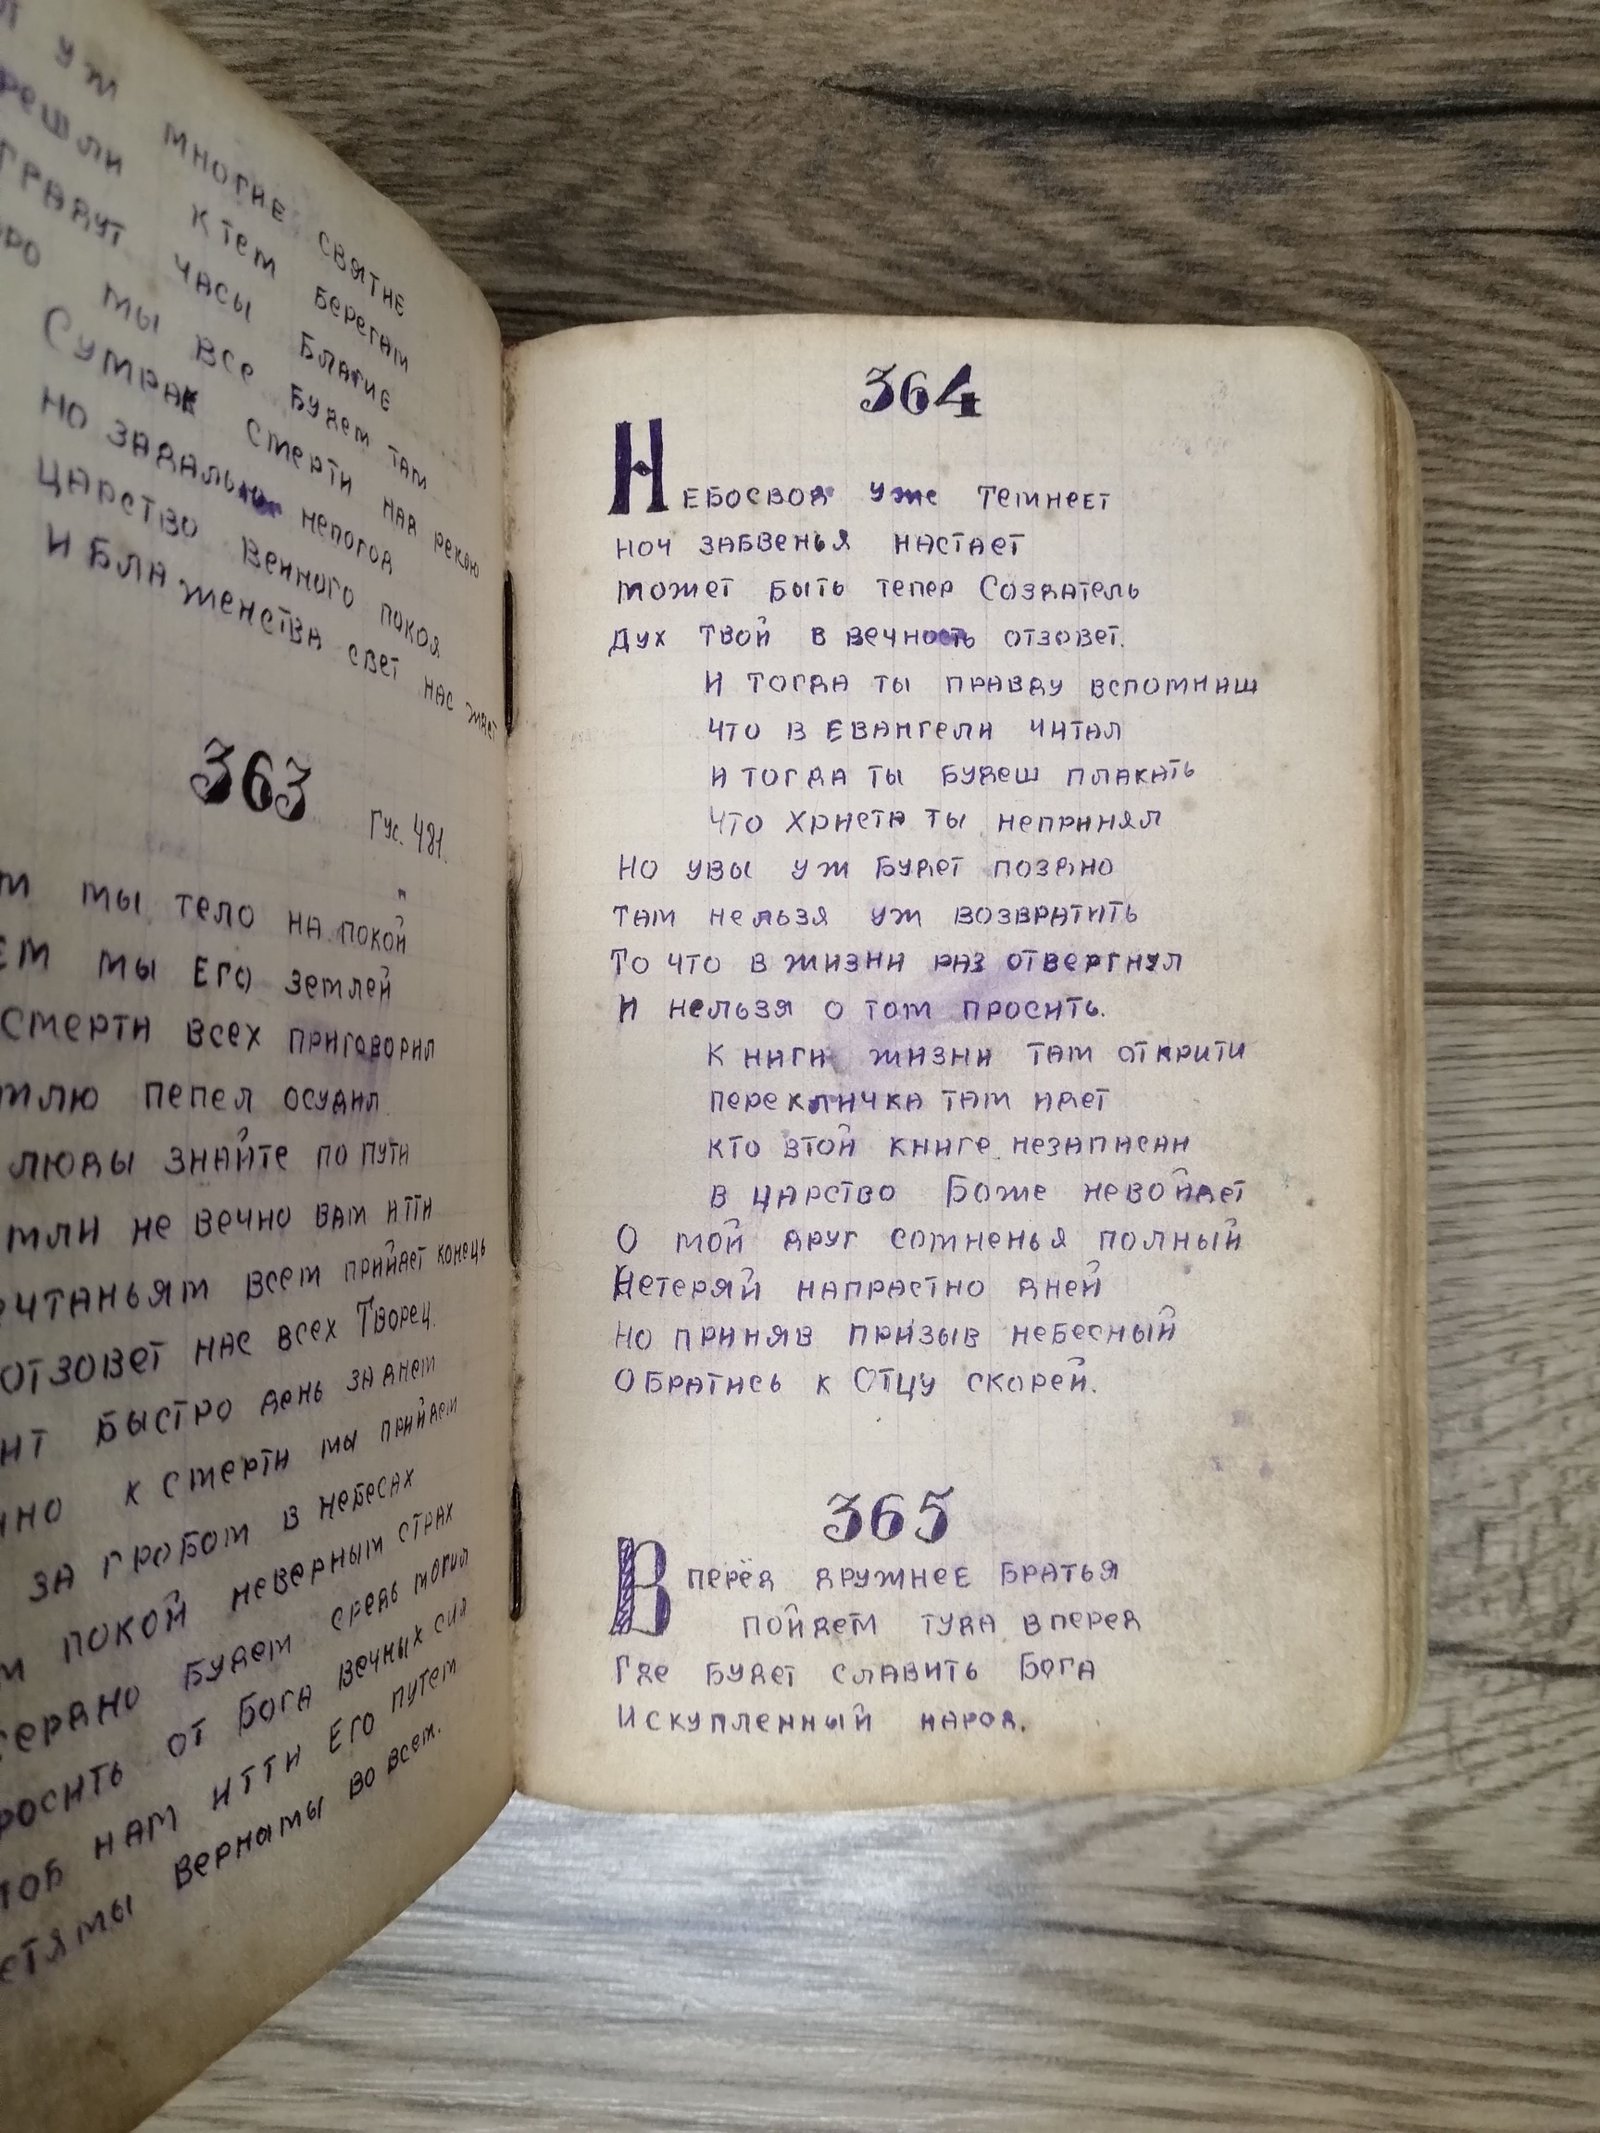 уж многие святые
решли к тем берегам
часы благие
мы все будем там
Сумрак смерти над рекою
но за дально непогод
царство венного покоя
и блаженства свет нас ждет
363
Гус. 481.
мы тело на покой
ем мы Его землей
смерти всех приговорил
млю пепел осудил
люды знайте по пути
мли не вечно вам итти
ечтаньям всем прийдет конець
отзовет нас всех Творец.
ит быстро день за днем
к смерти мы прийдем
за гробом в небесах
м покой неверным страх
сердно будем средь могил
росить от Бога вечных сил
тоб нам итти Его путем
стямы вернамы во всем.
364
Небосвод уже темнеет
ноч забвенья настает
может быть тепер Создатель
дух твой в вечность отзовет.
и тогда ты правду вспомниш
что в Евангели читал
и тогда ты будеш плакать
что Христа ты непринял
Но увы уж будет поздно
там нельзя уж возвратить
То что в жизни раз отвергнул
И нельзя о том просить.
книги жизни там открити
перекличка там идет
кто втой книге незаписан
в царство Боже невойдет
О мой друг сомненья полный
Нетеряй напрастно дней
Но приняв призыв небесный
Обратись к Отцу скорей.
365
Вперёд дружнее братья
пойдем туда вперед
Где будет славить Бога
Искупленный народ.